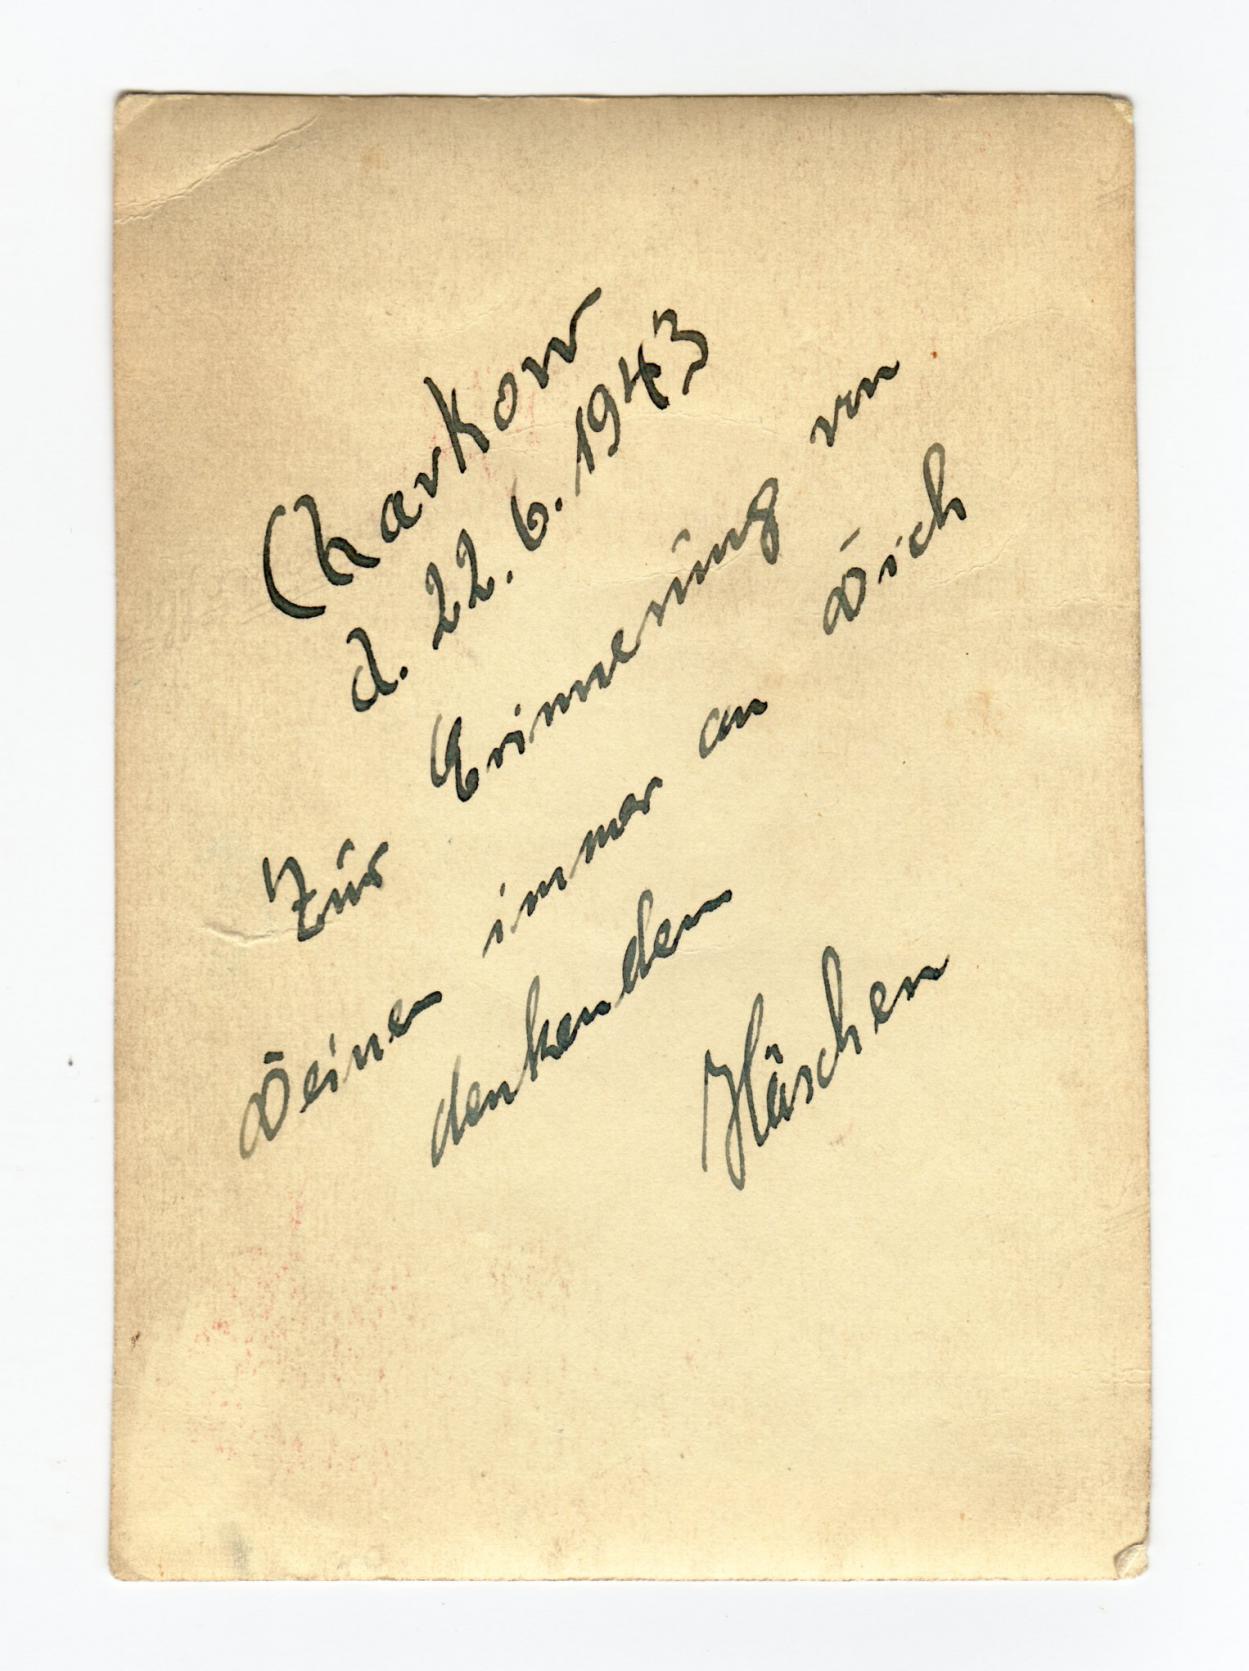 Charkow
d. 22.6.1943
Zur Erinnerung von
Deinen immer an Dich
denkenden
Häschen